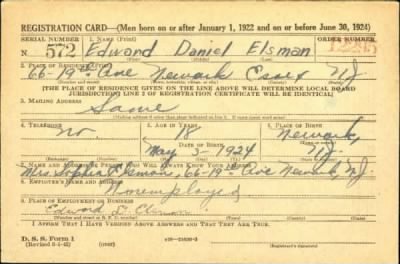 REGISTRATION CARD—(Men born on or after January 1, 1922 and on or before June 30, 1924)
SERIAL NUMBER 1. NAME (Print) ORDER NUMBER
N 572 Edward Daniel Elsman
(First) (Middle) (Last)
2. PLACE OF RESIDENCE (Print)
66-19th Ave Newark Essex NJ
[THE PLACE OF RESIDENCE GIVEN ON THE LINE ABOVE WILL DETERMINE LOCAL BOARD
JURISDICTION; LINE 2 OF REGISTRATION CERTIFICATE WILL BE IDENTICAL]
3. MAILING ADDRESS
Same
4. TELEPHONE 5. AGE IN YEARS 6. PLACE OF BIRTH
no 18 Newark,
DATE OF BIRTH
May 3 1924 NJ
7. NAME AND ADDRESS OF PERSON WHO WILL ALWAYS KNOW YOUR ADDRESS
Mrs. Sophie 66-19th Ave Newark NJ.
8. EMPLOYER'S NAME AND ADDRESS
Unemployed
9. PLACE OF EMPLOYMENT OR BUSINESS
Edward D.
I AFFIRM THAT I HAVE VERIFIED ABOVE ANSWERS AND THAT THEY ARE TRUE.
D. S. S. Form 1
(over) (Registrant's signature)